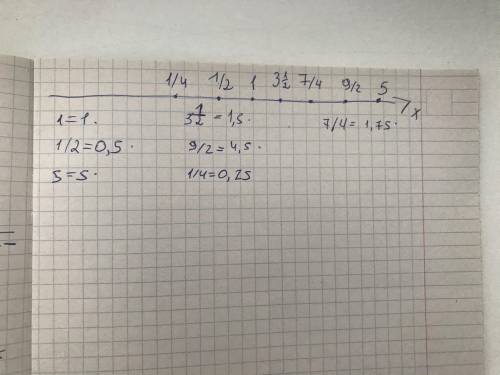 1/4 1/2 1 3 1/2 7/4 9/2 5
x
1=1. 3 1/2 = 1,5. 7/4 = 1,75.
1/2=0,5. 9/2 = 4,5.
5=5. 1/4=0,25